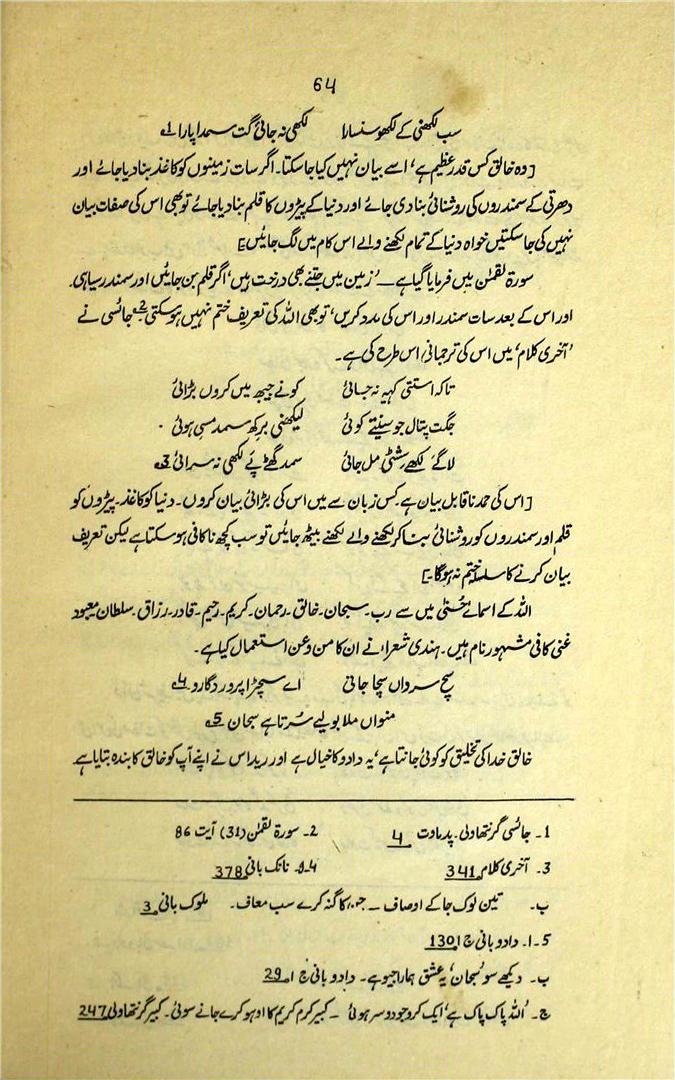 64
سب لکھنی کے لکھو سنسارا لکھی نہ جائی گت سمدا پارا 1ے
[وہ خالق کس قدر عظیم ہے، اسے بیان نہیں کیا جا سکتا۔ اگر سات زمینوں کو کاغذ بنا دیا جائے اور
دھرتی کے سمندروں کی روشنائی بنا دی جائے اور دنیا کے پیڑوں کا قلم بنا دیا جائے تو بھی اس کی صفات بیان
نہیں کی جا سکتیں خواہ دنیا کے تمام لکھنے والے اس کام میں لگ جائیں]
سورۃ لقمٰن میں فرمایا گیا ہے ــ ’زمین میں جتنے بھی درخت ہیں، اگر قلم بن جائیں اور سمندر سیاہی۔
اور اس کے بعد سات سمندر اور اس کی مدد کریں، تو بھی اللہ کی تعریف ختم نہیں ہو سکتی 2ے جائسی نے
’آخری کلام‘ میں اس کی ترجمانی اس طرح کی ہے۔
تاکہ استتی کہیہ نہ جائی کونے جیبھ میں کروں بڑائی
جگت پتال جو سینتے کوئی لیکھنی برکھ سمد مسی ہوئی
لاگے لکھے سِشٹی مل جائی سمد گھٹے پے لکھی نہ سرائی 3ے
[اس کی حمد ناقابل بیان ہے۔ کس زبان سے میں اس کی بڑائی بیان کروں۔ دنیا کو کاغذ۔ پیڑوں کو
قلم اور سمندروں کو روشنائی بنا کر لکھنے والے لکھنے بیٹھ جائیں تو سب کچھ ناکافی ہو سکتا ہے لیکن تعریف
بیان کرنے کا سلسلہ ختم نہ ہوگا۔]
اللہ کے اسمائے حُسنٰی میں سے رب۔ سبحان۔ خالق۔ رحمان۔ کریم۔ رحیم۔ قادر۔ رزاق۔ سلطان معبود
غنی کافی مشہور نام ہیں۔ ہندی شعراء نے ان کا من و عن استعمال کیا ہے۔
سچ سرداں سچا جاتی اے سچڑا پروردگارو 4ے
منواں ملا بولیے سُرتا ہے سبحان 5ے
خالق خدا کی تخلیق کو کوئی جانتا ہے، یہ دادو کا خیال ہے اور ریداس نے اپنے آپ کو خالق کا بندہ بتایا ہے
1۔ جائسی گرنتھاولی۔ پدماوت 4 2۔ سورۃ لقمٰن (31) آیت 86
3۔ آخری کلام 341 4۔ ا۔ نانک بانی 378
ب۔ تین لوک جا کے اوصاف ــ جن کا گنہ کرے سب معاف۔ ملوک بانی 3
5۔ ا۔ دادو بانی ج ا۔ 130
ب۔ دیکھے سو سُبحان، یہ عشق ہمارا جیو ہے۔ دادو بانی ج ا۔ 29
ج۔ ’اللہ پاک پاک ہے، ایک کرو جو دوسر ہوئی ــ کبیر کرم کریم کا اوہو کرے جانے سوئی۔ کبیر گرنتھاولی 247